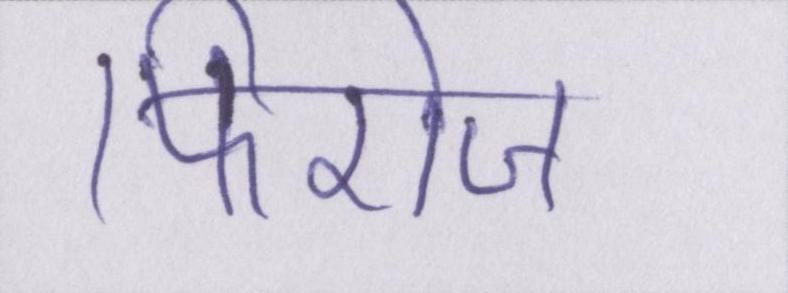 फिरोज